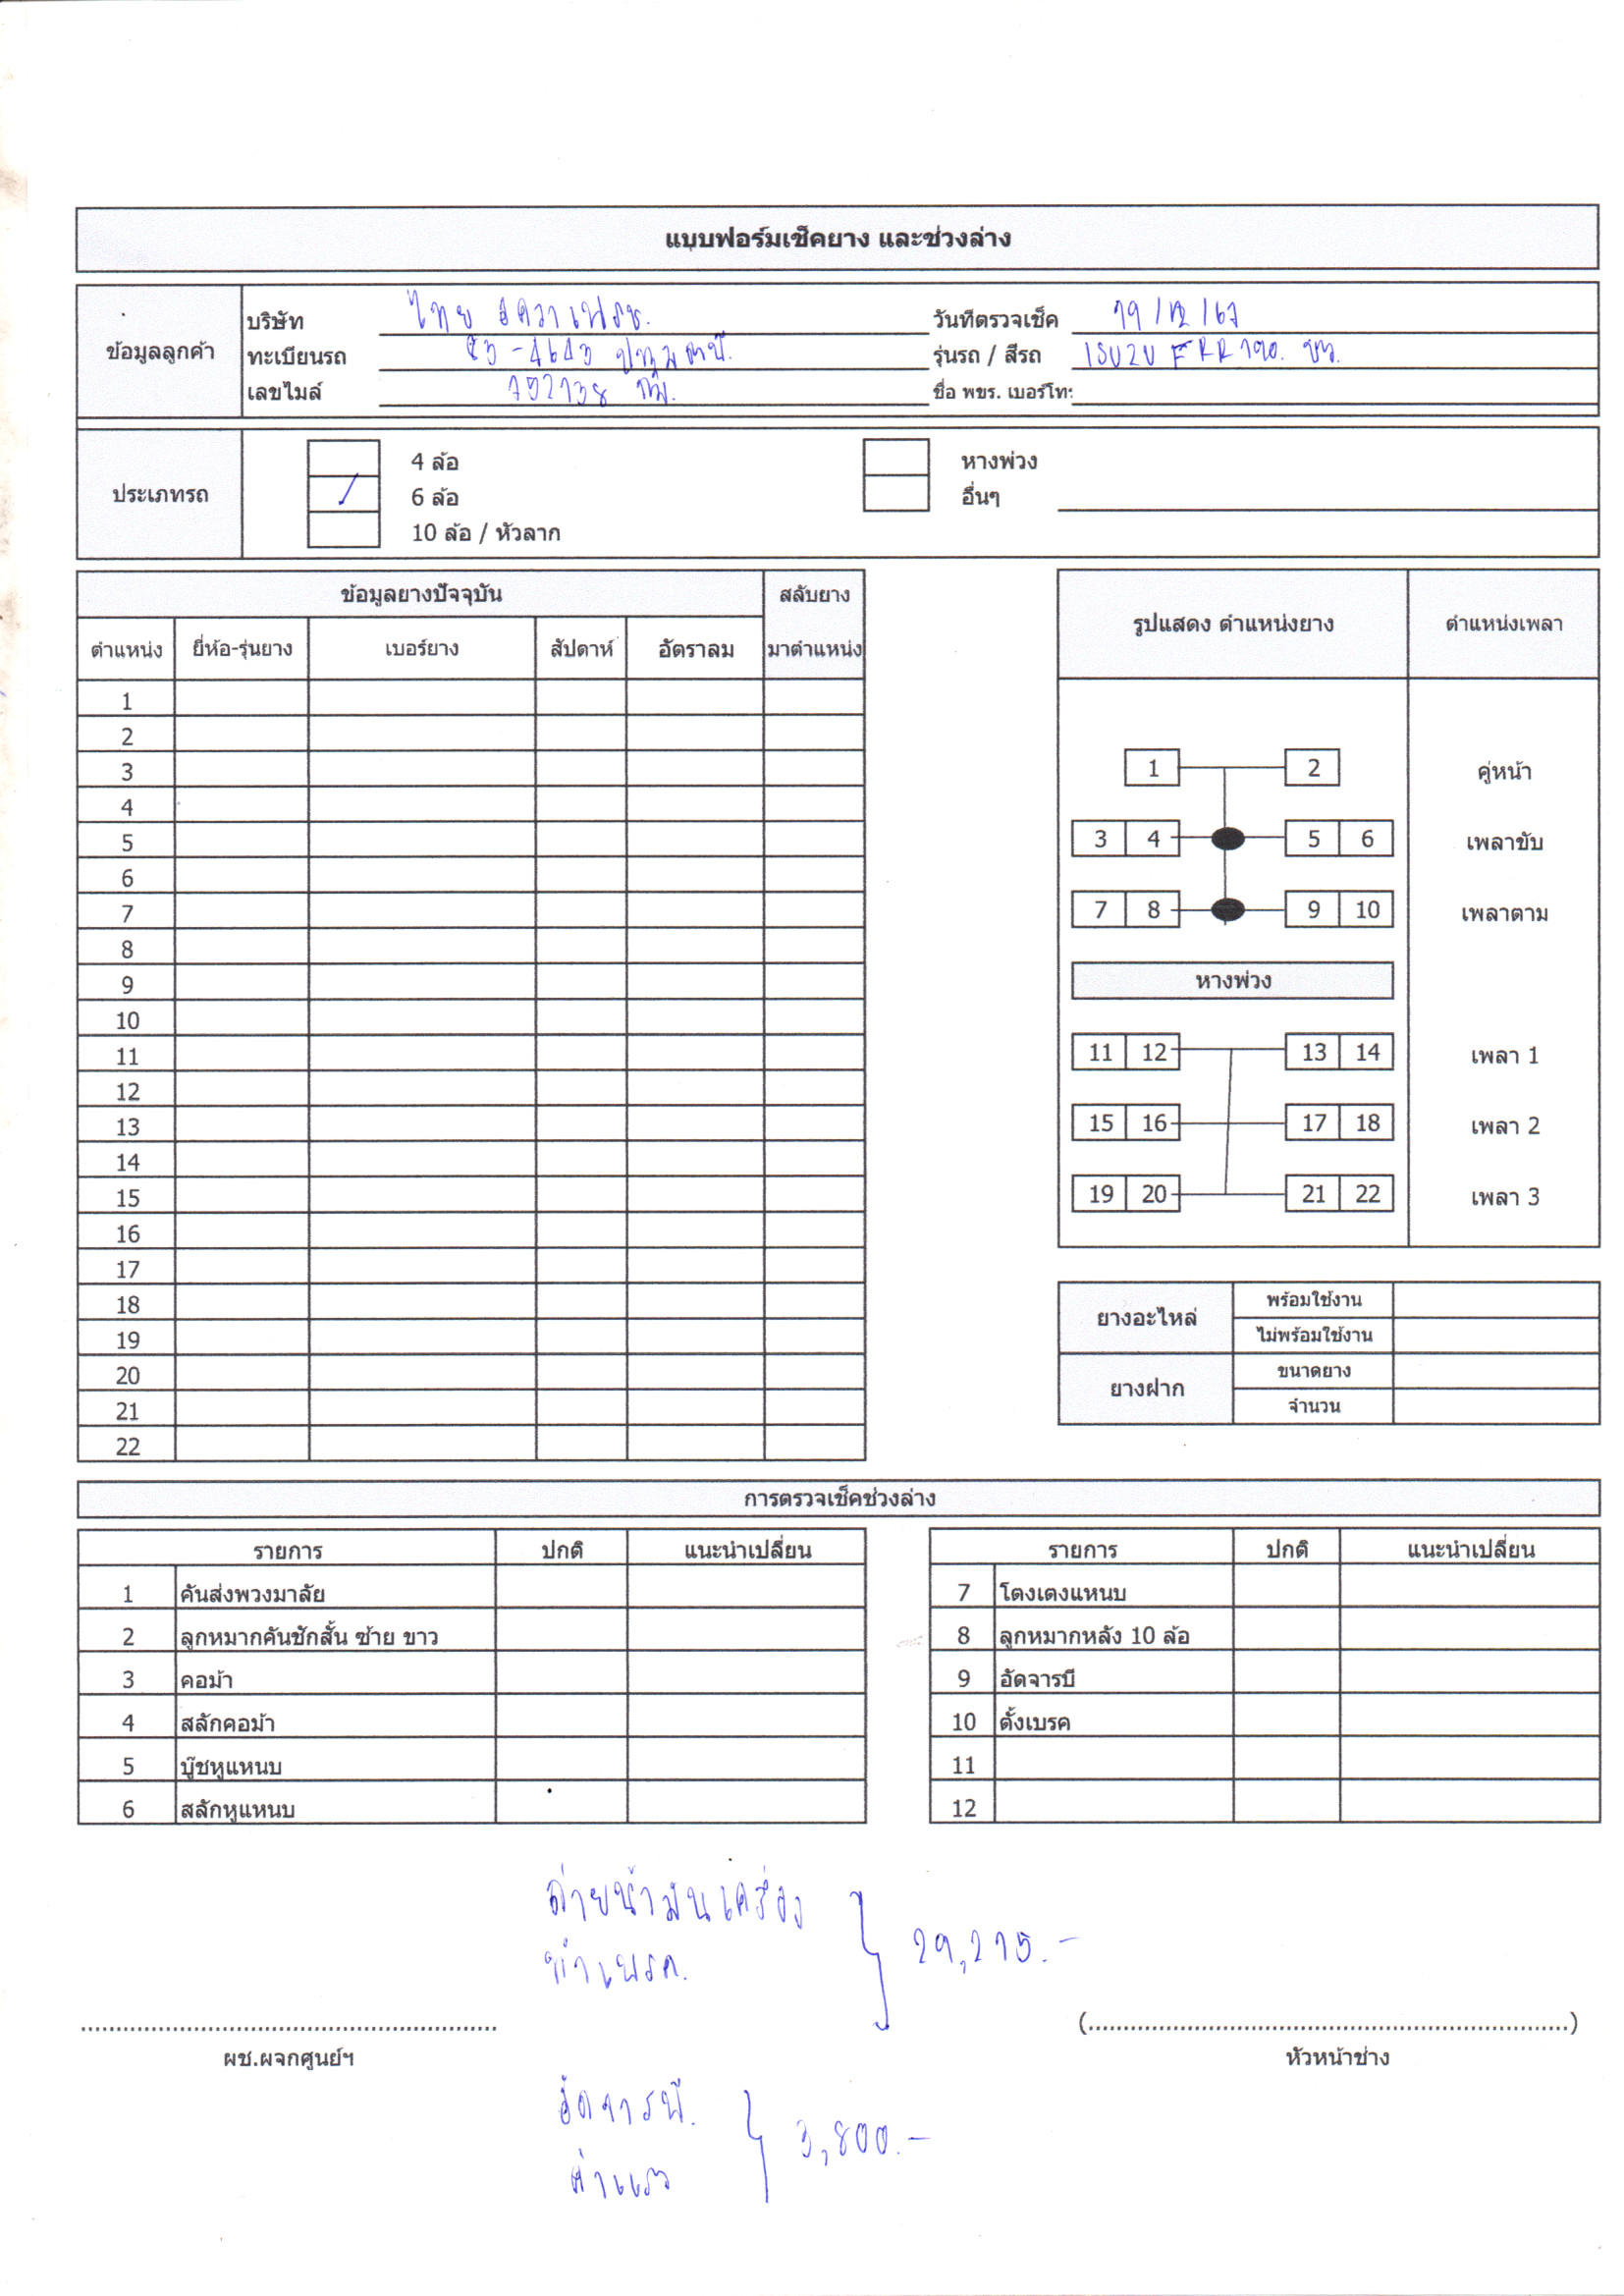 แบบฟอร์มเช็คยาง และช่วงล่าง
ข้อมูลลูกค้า
บริษัท ไทย อควา เฟรช. วันที่ตรวจเช็ค 19/12/67
ทะเบียนรถ 83-4643 ปทุมธานี. รุ่นรถ / สีรถ ISUZU FRR190. ขาว.
เลขไมล์ 192138 กม. ชื่อ พขร. เบอร์โท:
ประเภทรถ
4 ล้อ หางพ่วง
/ 6 ล้อ อื่นๆ
10 ล้อ / หัวลาก
ข้อมูลยางปัจจุบัน สลับยาง
ตำแหน่ง ยี่ห้อ-รุ่นยาง เบอร์ยาง สัปดาห์ อัตราลม มาตำแหน่ง
1
2
3
4
5
6
7
8
9
10
11
12
13
14
15
16
17
18
19
20
21
22
รูปแสดง ตำแหน่งยาง ตำแหน่งเพลา
1 2 คู่หน้า
3 4 5 6 เพลาขับ
7 8 9 10 เพลาตาม
หางพ่วง
11 12 13 14 เพลา 1
15 16 17 18 เพลา 2
19 20 21 22 เพลา 3
ยางอะไหล่ พร้อมใช้งาน
ไม่พร้อมใช้งาน
ยางฝาก ขนาดยาง
จำนวน
การตรวจเช็คช่วงล่าง
รายการ ปกติ แนะนำเปลี่ยน
1 คันส่งพวงมาลัย
2 ลูกหมากคันชักสั้น ซ้าย ขาว
3 คอม้า
4 สลักคอม้า
5 บู๊ชหูแหนบ
6 สลักหูแหนบ
รายการ ปกติ แนะนำเปลี่ยน
7 โตงเตงแหนบ
8 ลูกหมากหลัง 10 ล้อ
9 อัดจารบี
10 ตั้งเบรค
11
12
ถ่ายน้ำมันเครื่อง
ทำเบรค. 29,215.-
ผช.ผจกศูนย์ฯ
(....................) 
หัวหน้าช่าง
อัดจารบี. 3,800.-
ค่าแรง